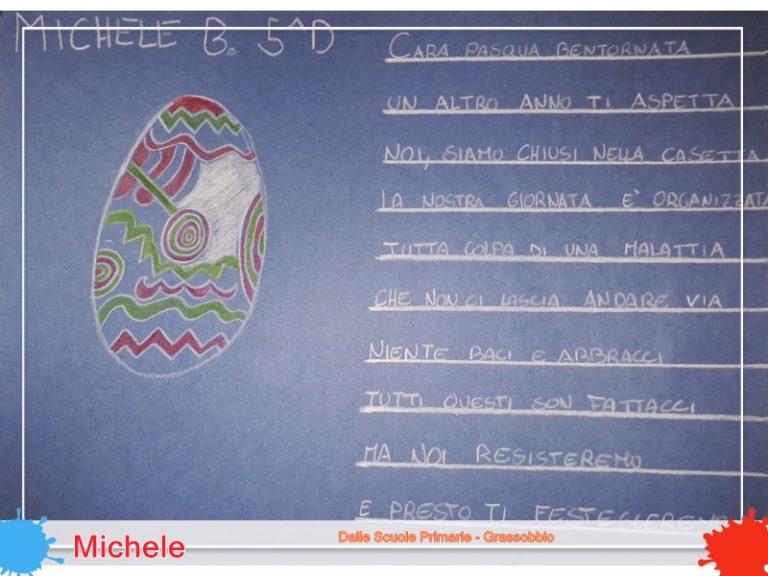 MICHELE B. 5^D
CARA PASQUA BENTORNATA
UN ALTRO ANNO TI ASPETTA
NOI, SIAMO CHIUSI NELLA CASETTA
LA NOSTRA GIORNATA E' ORGANIZZATA
TUTTA COLPA DI UNA MALATTIA
CHE NON CI LASCIA ANDARE VIA
NIENTE BACI E ABBRACCI
TUTTI QUESTI SON FATTACCI
MA NOI RESISTEREMO
E PRESTO TI FESTEGGEREMO
Michele
Dalle Scuole Primarie - Grassobbio